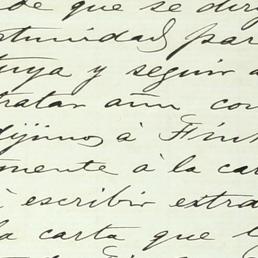 de que se diri
tunidad par
tuya y seguir a
tratar aún con
dijimos à Fint
mente à la car
à escribir extra
la carta que l